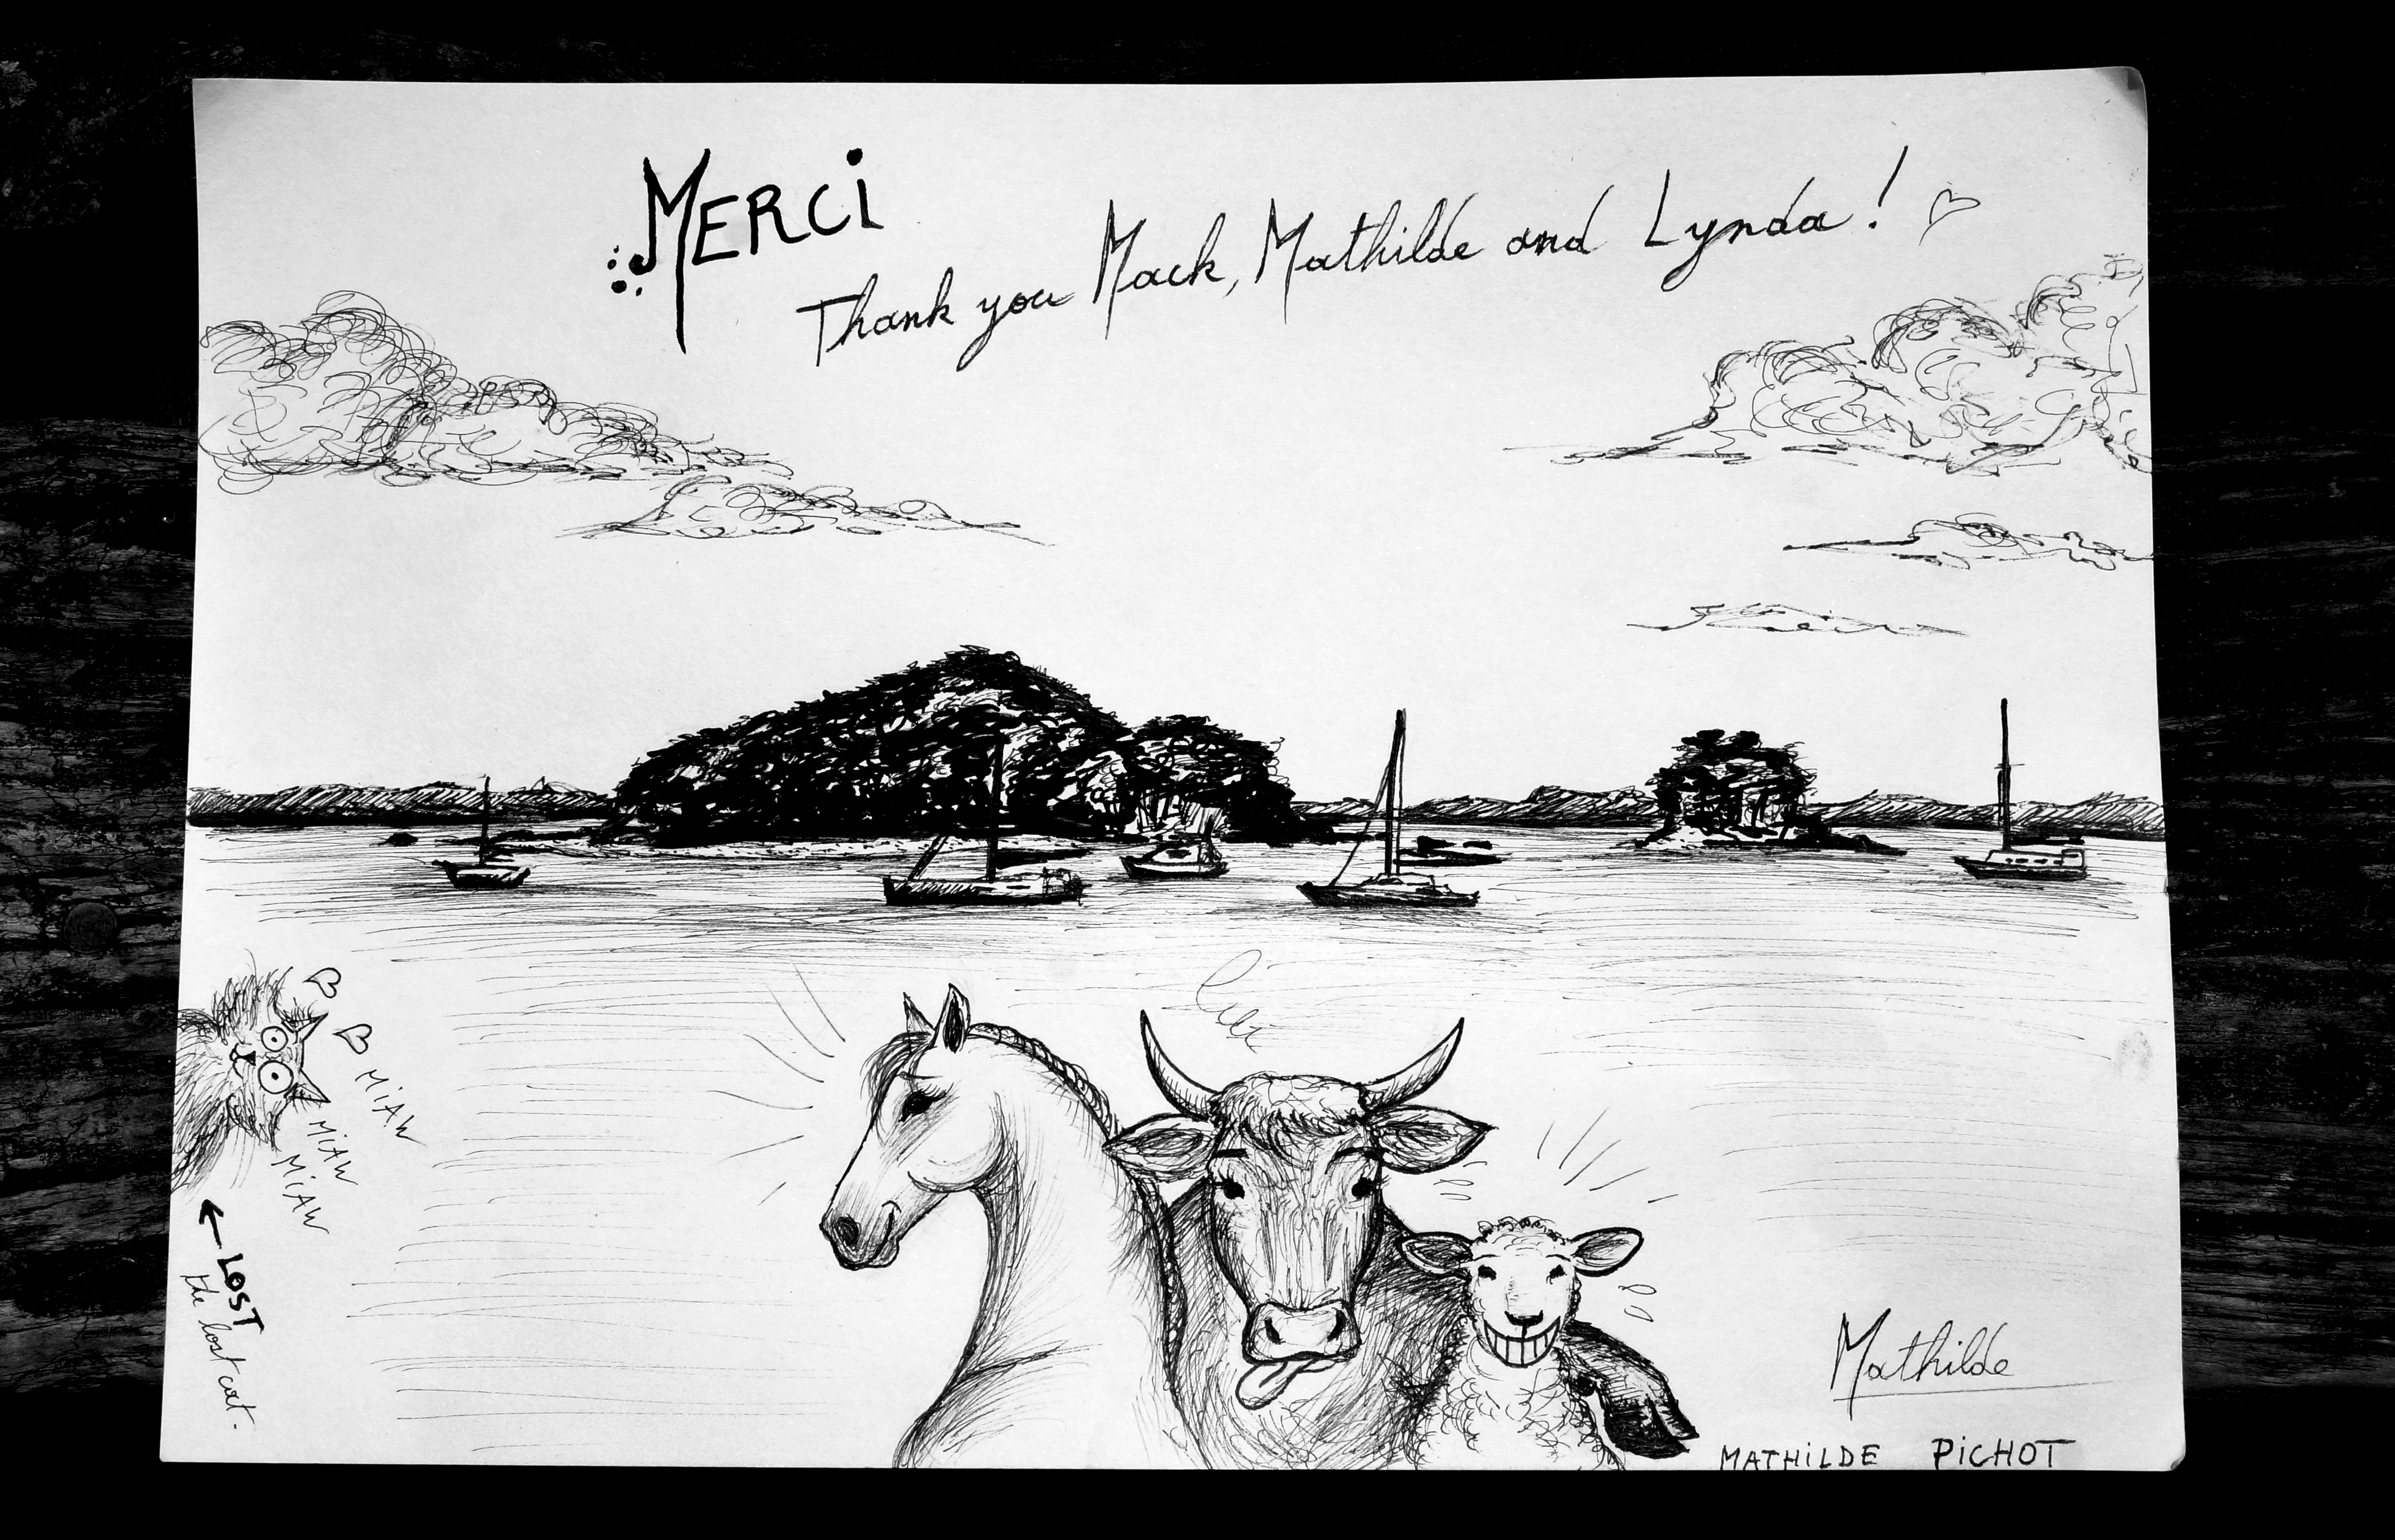 MERCI
Thank you Mack, Mathilde and Lynda!
MiAW
MiAW
MiAW
LOST
the lost cat.
Mathilde
MATHiLDE PiCHOT